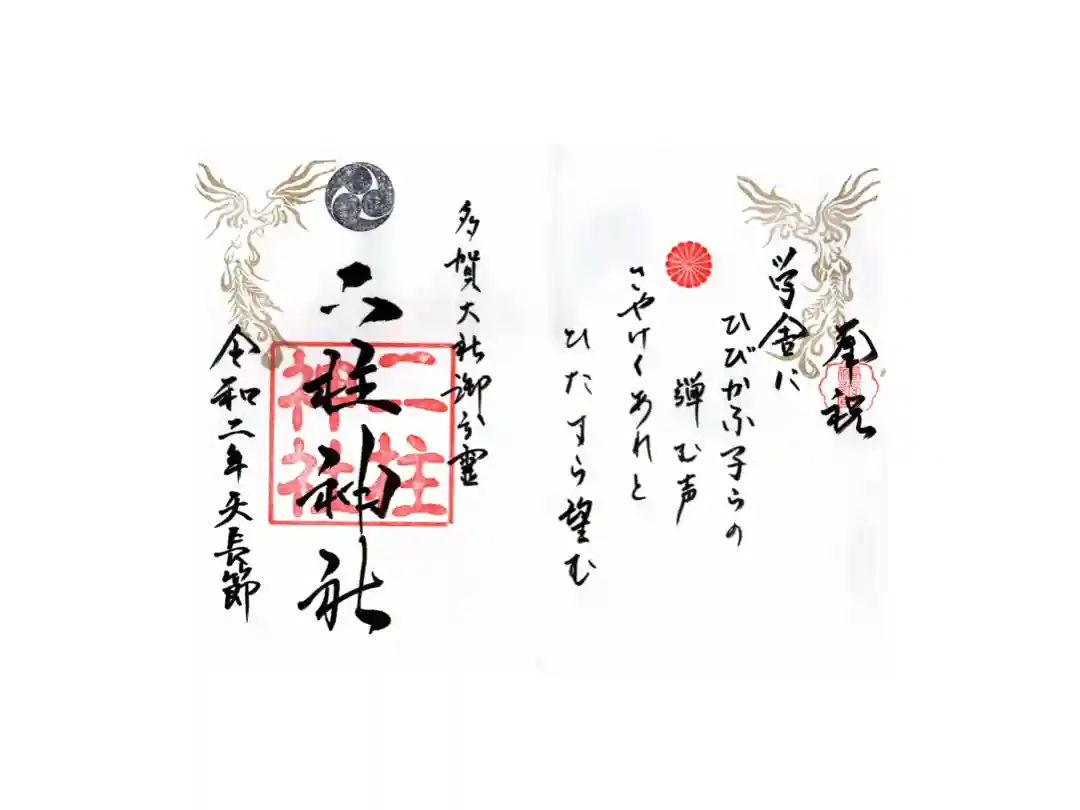 奉祝
学舎に
ひびかふ子らの
弾む声
さやけくあれと
ひたすら望む
多賀大社御分霊
二柱神社
二柱
神社
令和二年天長節